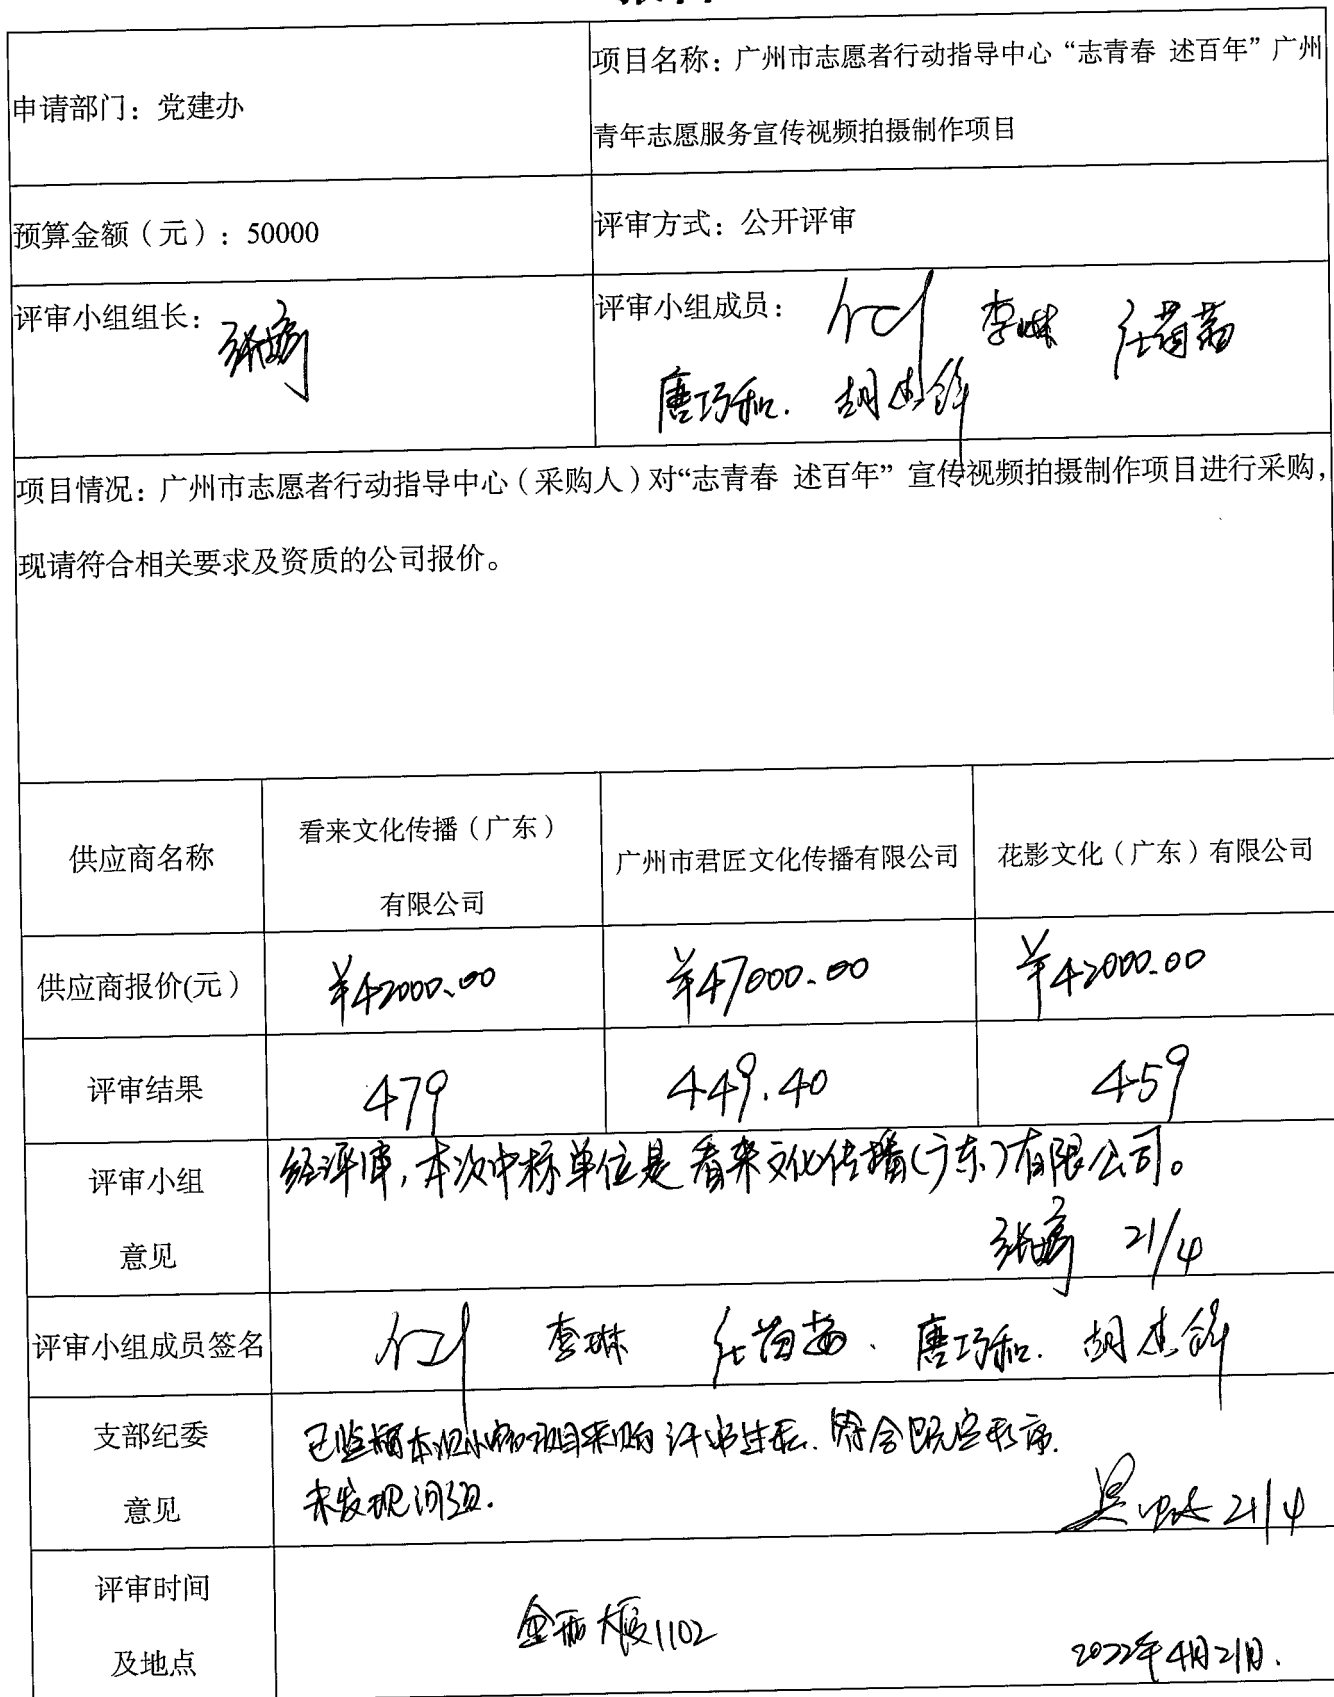 申请部门：党建办
项目名称：广州市志愿者行动指导中心“志青春 述百年”广州
青年志愿服务宣传视频拍摄制作项目
预算金额（元）：50000
评审方式：公开评审
评审小组组长：
评审小组成员：
李琳
唐巧和. 胡杰锋
项目情况：广州市志愿者行动指导中心（采购人）对“志青春 述百年” 宣传视频拍摄制作项目进行采购，
现请符合相关要求及资质的公司报价。
供应商名称
看来文化传播（广东）
有限公司
广州市君匠文化传播有限公司
花影文化（广东）有限公司
供应商报价(元）
¥42000.00
¥47000.00
¥42000.00
评审结果
479
449.40
459
评审小组
意见
经评审，本次中标单位是看来文化传播(广东)有限公司。
21/4
评审小组成员签名
李琳
唐巧和. 胡杰锋
支部纪委
意见
已监督本次小额项目采购评审过程. 符合既定程序.
未发现问题.
21/4
评审时间
及地点
大厦1102
2022年4月21日.